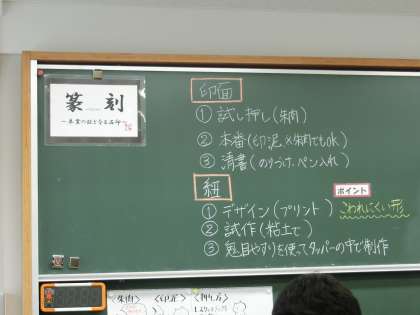 篆刻
印面
① 試し押し(朱肉)
② 本番(印泥 ※朱肉でもok)
③ 清書(のりづけ、ペン入れ)
紐
ポイント
① デザイン(プリント) こわれにくい形
② 試作(粘土で)
③ 鬼目やすりを使ってタッパーの中で制作
〈朱肉〉 〈印泥〉 〈押し方〉